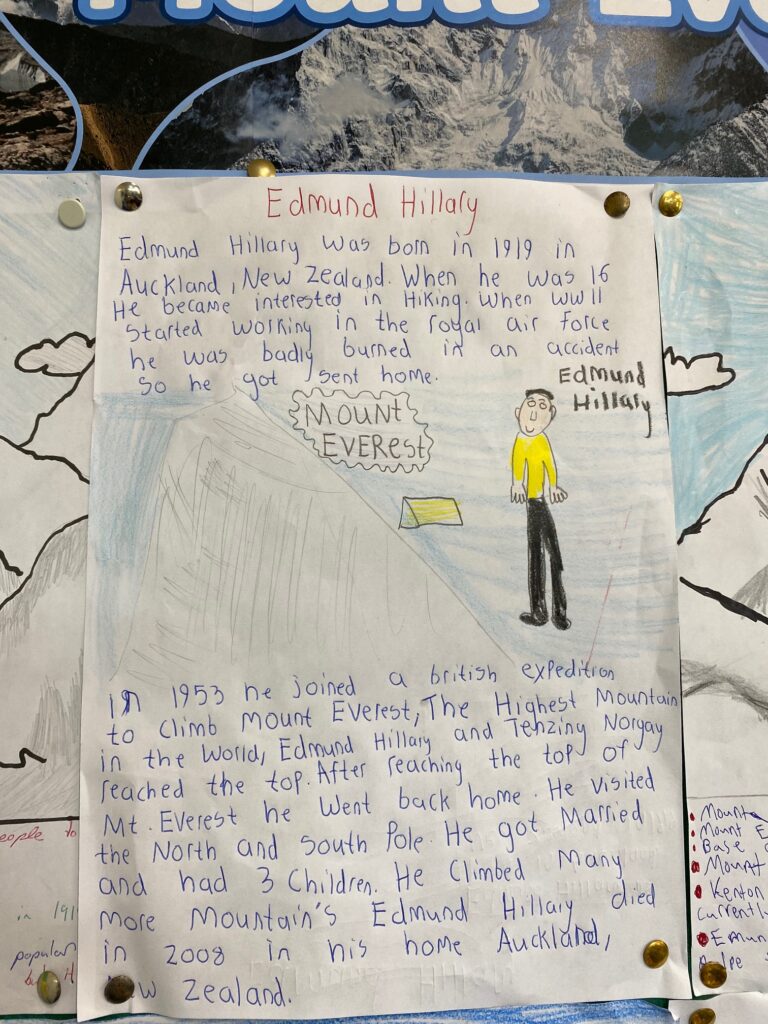 Mount Eve
Edmund Hillary
Edmund Hillary was born in 1919 in
Auckland, New Zealand. When he was 16
He became interested in Hiking. When WW11
Started working in the royal air Force
he was badly burned in an accident
so he got sent home.
Edmund
Hillary
MOUNT
EVEREST
in 1953 he joined a british expedition
to climb Mount Everest, The Highest Mountain
in the World, Edmund Hillary and Tenzing Norgay
reached the top. After reaching the top of
Mt. Everest he went back home. He visited
the North and South Pole. He got Married
and had 3 Children. He Climbed Many
more Mountain's Edmund Hillary died
in 2008 in his home Auckland,
New Zealand.
eople to
in 191
popular
Mount
Mount E
Base
Mount
Kenton
Currently
Edmun